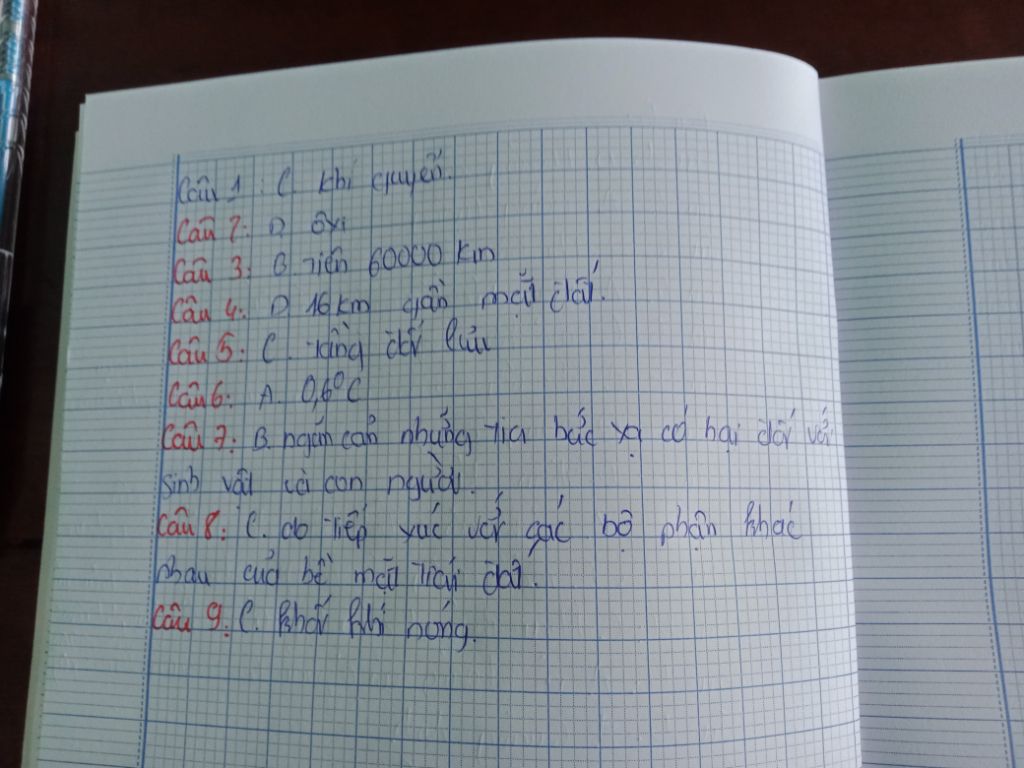 Câu 1: C. khí quyển.
Câu 2: D ôxi
Câu 3: B. Trên 60000 km
Câu 4: D 16 km gần mặt đất.
Câu 5: C. Tầng đối lưu
Câu 6: A. 0,6°C
Câu 7: B. ngăn cản những tia bức xạ có hại đối với
sinh vật và con người.
Câu 8: C. do tiếp xúc với các bộ phận khác
nhau của bề mặt trái đất.
Câu 9: C. khối khí nóng.